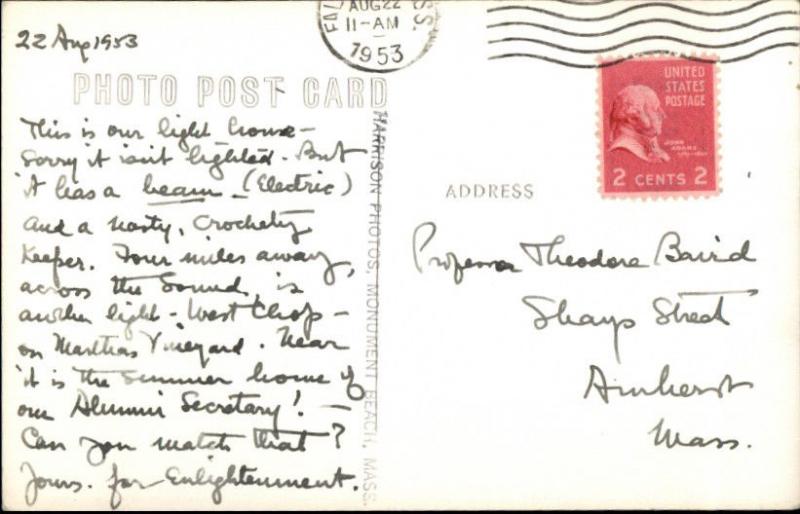 22 Aug 1953
FAL
SS.
AUG 22
11-AM
1953
UNITED
STATES
POSTAGE
JOHN
ADAMS
2 CENTS 2
PHOTO POST CARD
This is our light house-
Sorry it isn't lighted. But
it has a beam (Electric)
and a nasty, crochety
Keeper. Four miles away,
across the Sound, is
another light - West Chop -
on Marthas Vineyard. Near
it is the summer home of
our Alumni Secretary! -
Can you match that?
Yours. for Enlightenment.
HARRISON PHOTOS, MONUMENT BEACH, MASS.
ADDRESS
Professor Theodore Baird
Shays Street
Amherst
Mass.